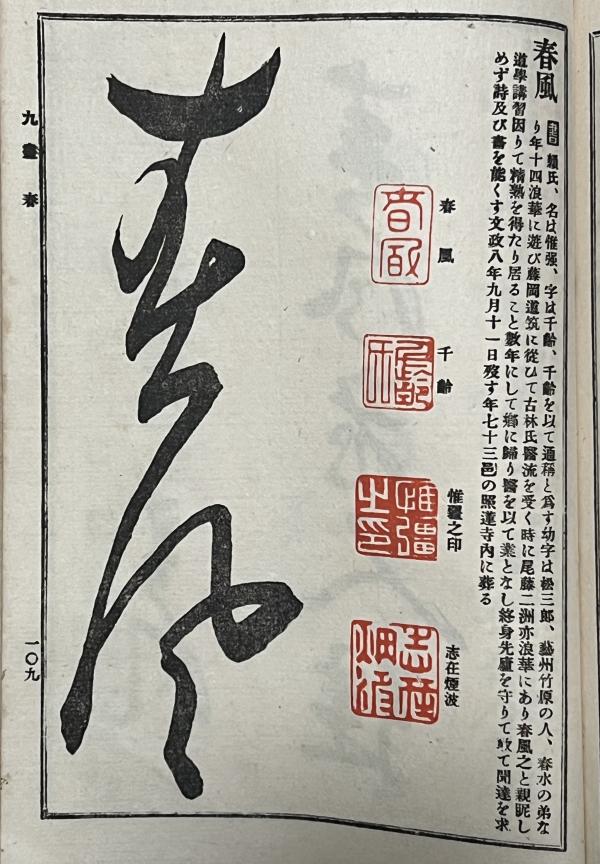 春風
書 賴氏、名は惟强、字は千齡、千齡を以て通稱と爲す幼字は松三郎、藝州竹原の人、春水の弟な
り年十四浪華に遊び藤岡道筑に從ひて古林氏醫流を受く時に尾藤二洲亦浪華にあり春風之と親眤し
道學講習因りて精熟を得たり居ること數年にして鄕に歸り醫を以て業となし終身先廬を守りて敢て聞達を求
めず詩及び書を能くす文政八年九月十一日歿す年七十三邑の照蓮寺內に葬る
春風
千齡
惟彊之印
志在煙波
春風
千齡
惟彊之印
志在烟波
春風
九畫 春
一〇九